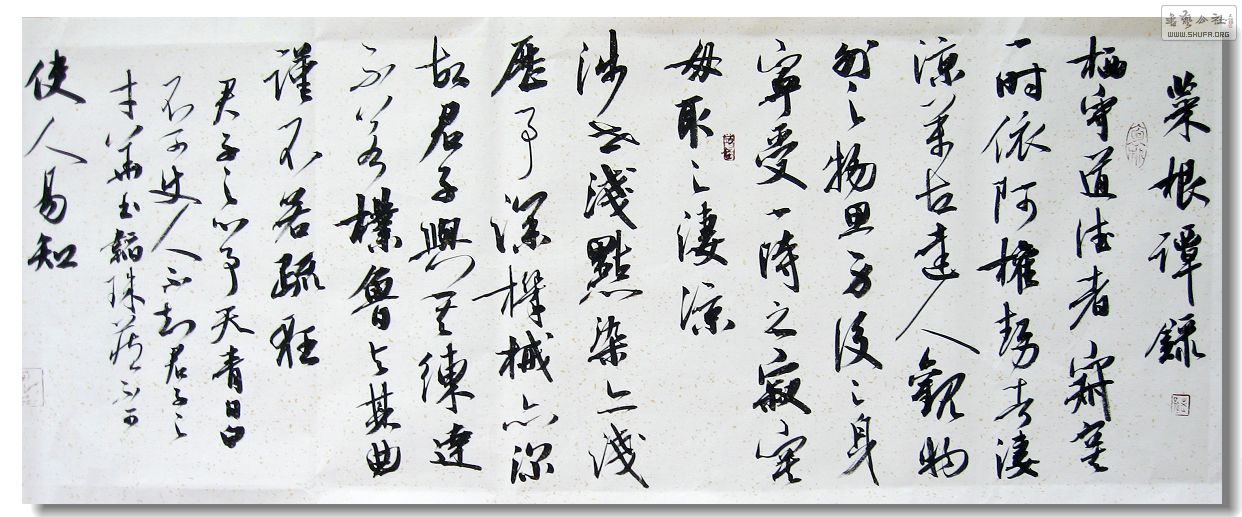 菜根譚錄
栖守道德者寂寞
一時依阿權勢者凄
涼萬古達人觀物
外之物思身後之身
寧受一時之寂寞
毋取之凄涼
涉世淺點染亦淺
歷事深機械亦深
故君子與其練達
不若樸魯與其曲
謹不若疏狂
君子之心事天青日白
不可使人不知君子之
才華玉韞珠藏不可
使人易知
书艺公社
WWW.SHUFA.ORG